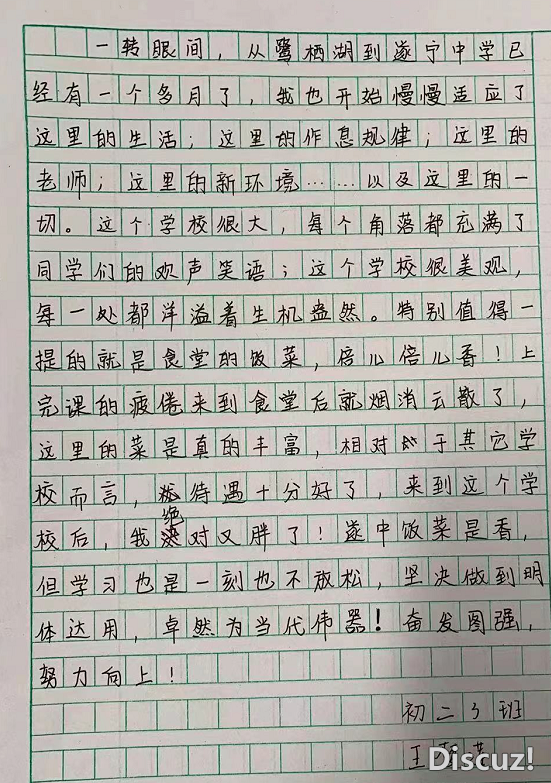 一转眼间，从鹭栖湖到遂宁中学已
经有一个多月了，我也开始慢慢适应了
这里的生活；这里的作息规律；这里的
老师；这里的新环境……以及这里的一
切。这个学校很大，每个角落都充满了
同学们的欢声笑语；这个学校很美观，
每一处都洋溢着生机盎然。特别值得一
提的就是食堂的饭菜，倍儿倍儿香！上
完课的疲倦来到食堂后就烟消云散了，
这里的菜是真的丰富，相对于其它学
校而言，待遇十分好了，来到这个学
校后，我绝对又胖了！遂中饭菜是香，
但学习也是一刻也不放松，坚决做到明
体达用，卓然为当代伟器！奋发图强，
努力向上！
初二3班
王
Discuz!